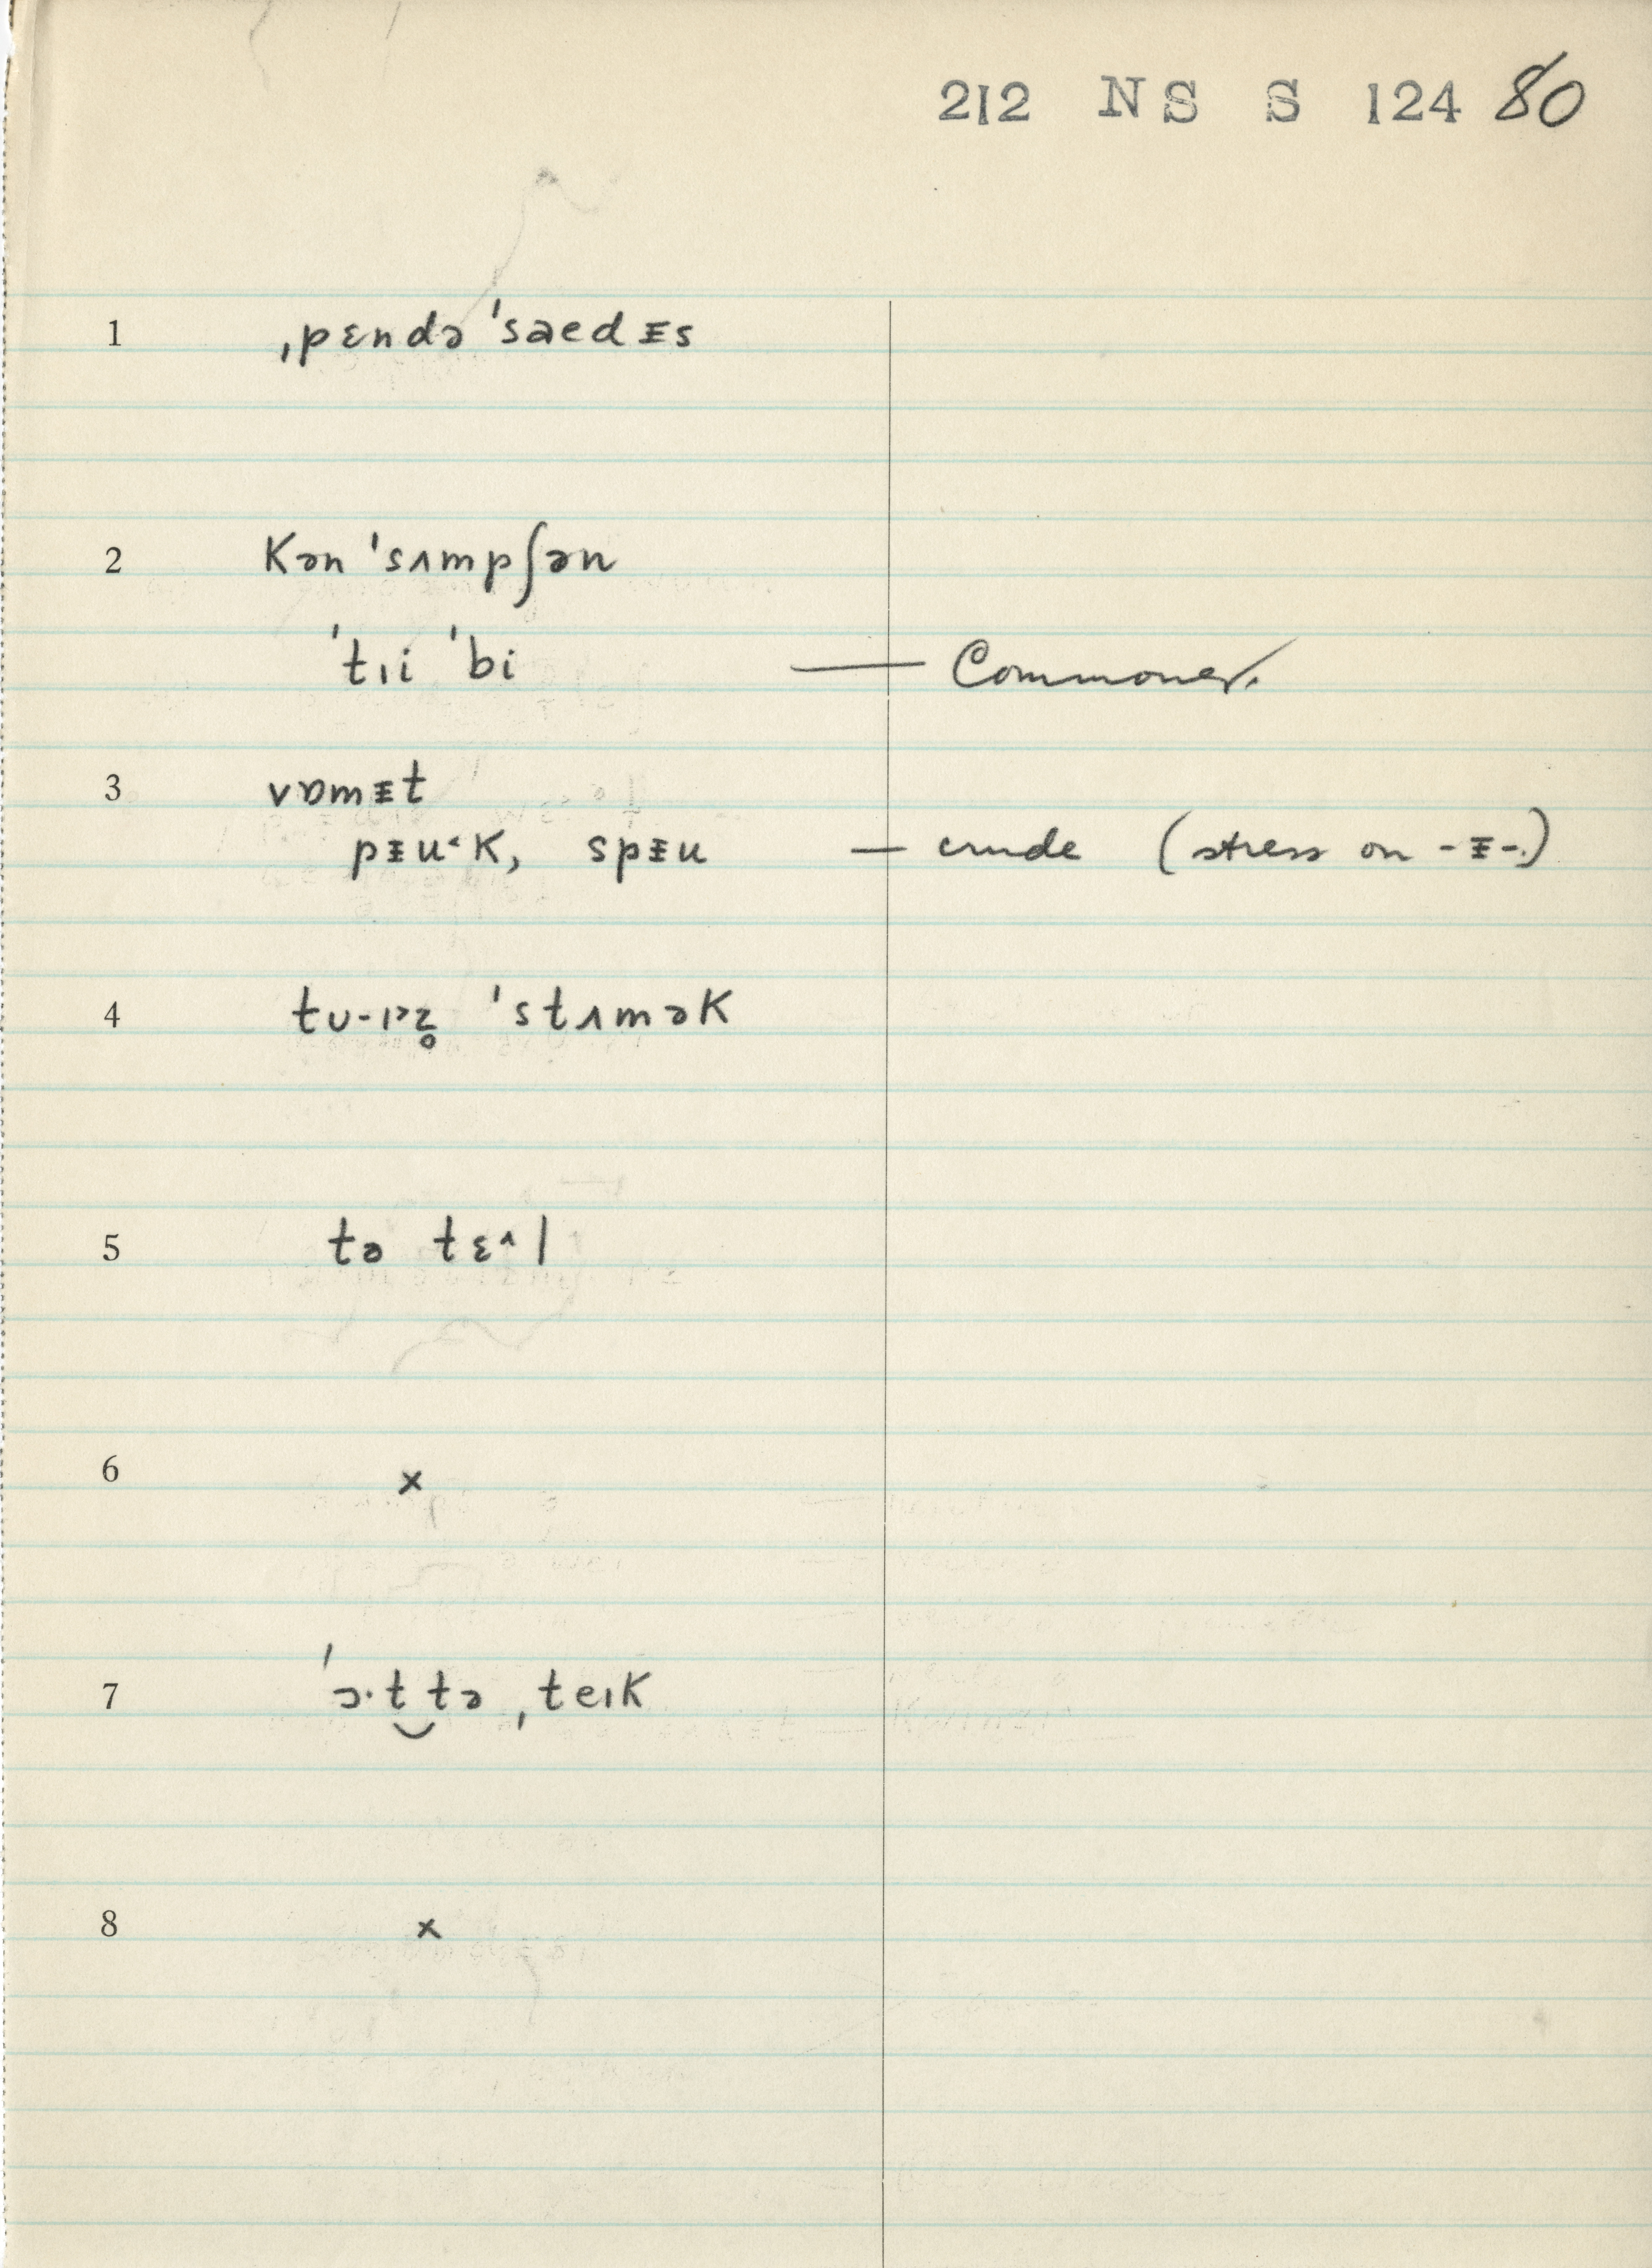 212 NS S 124 80
1 ˌpɛndə ˈsaedᵻs
2 kən ˈsʌmpʃən
ˈtɪi ˈbi — Commoner.
3 vɒmᵻt
pᵻu˂k, spᵻu — crude (stress on -ᵻ-.)
4 ˈstʌmək
5 tə tɛ^l
6 x
7 ˈɔ·t‿tə ˌteɪk
8 x